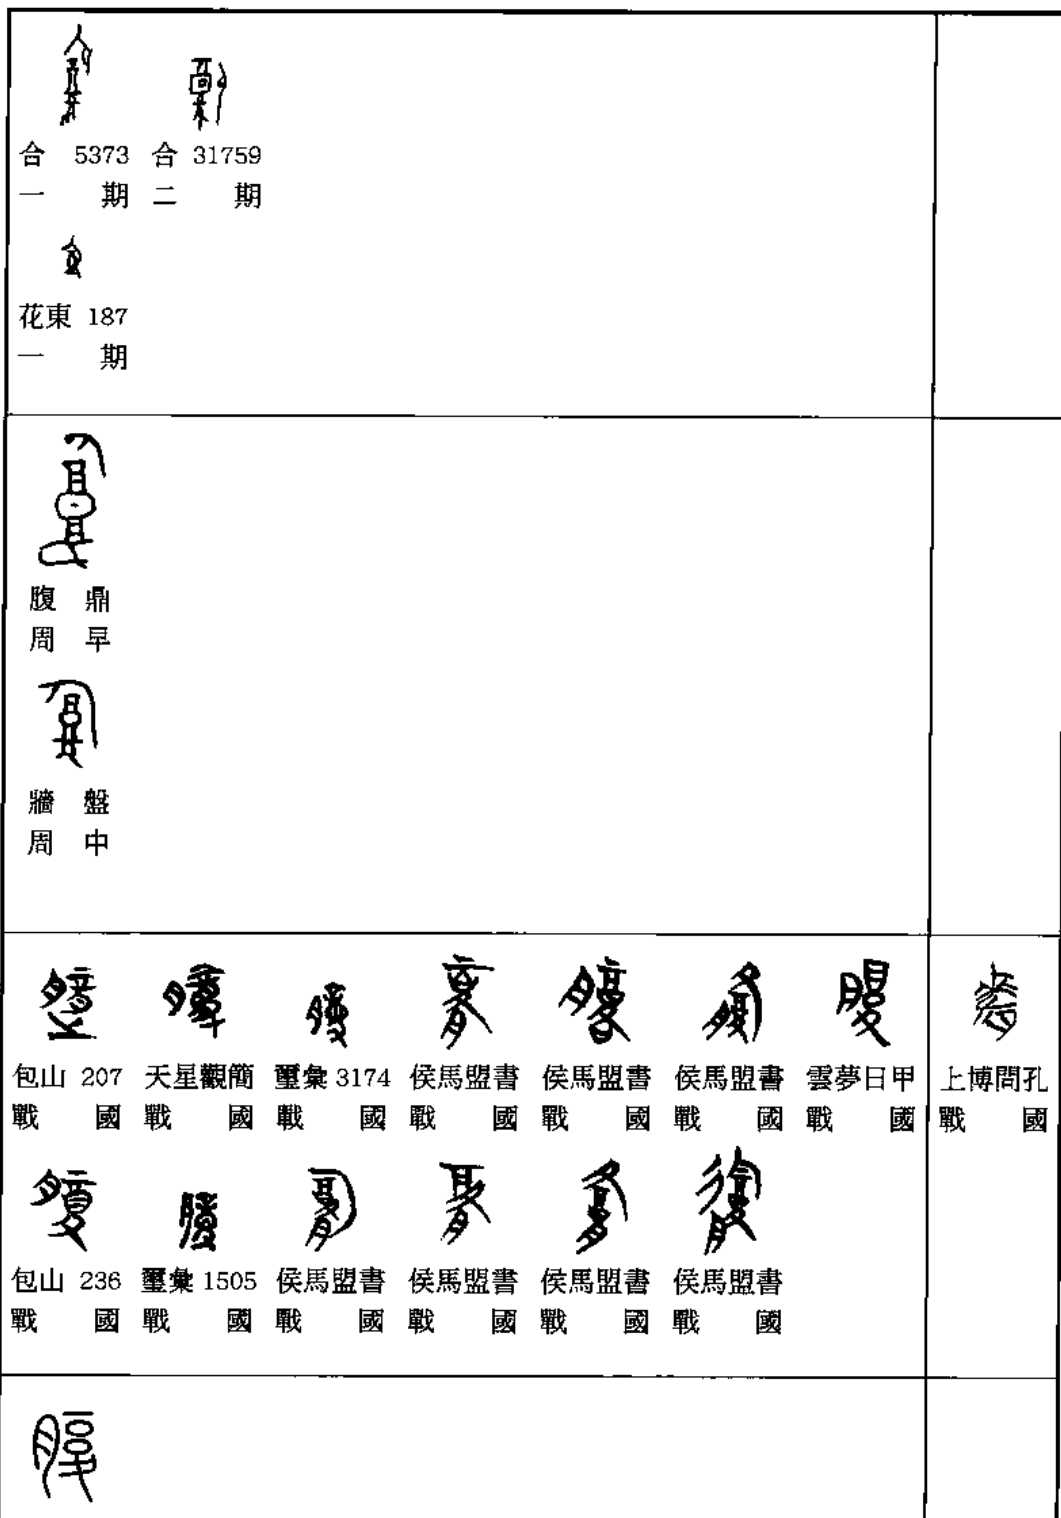 合 5373 合 31759
一期 二期
花東 187
一期
腹鼎
周早
牆盤
周中
包山 207 天星觀簡 璽彙 3174 侯馬盟書 侯馬盟書 侯馬盟書 雲夢日甲 上博問孔
戰國 戰國 戰國 戰國 戰國 戰國 戰國 戰國
包山 236 璽彙 1505 侯馬盟書 侯馬盟書 侯馬盟書 侯馬盟書
戰國 戰國 戰國 戰國 戰國 戰國